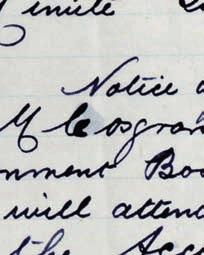 Notice
M Cosgra
nment Boa
will attend
the Acco